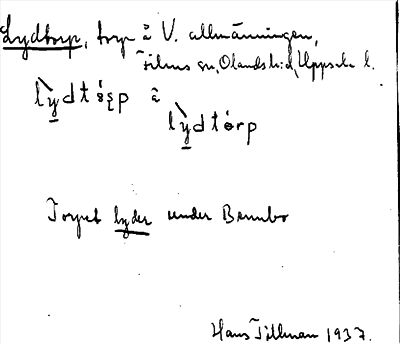 Lydtorp, torp å V. allmänningen,
Films sn, Olands hd, Uppsala l.
lỳdtórp å
lỳdtórp
Torpet lyder under Bennbo
Hans Tillman 1937.